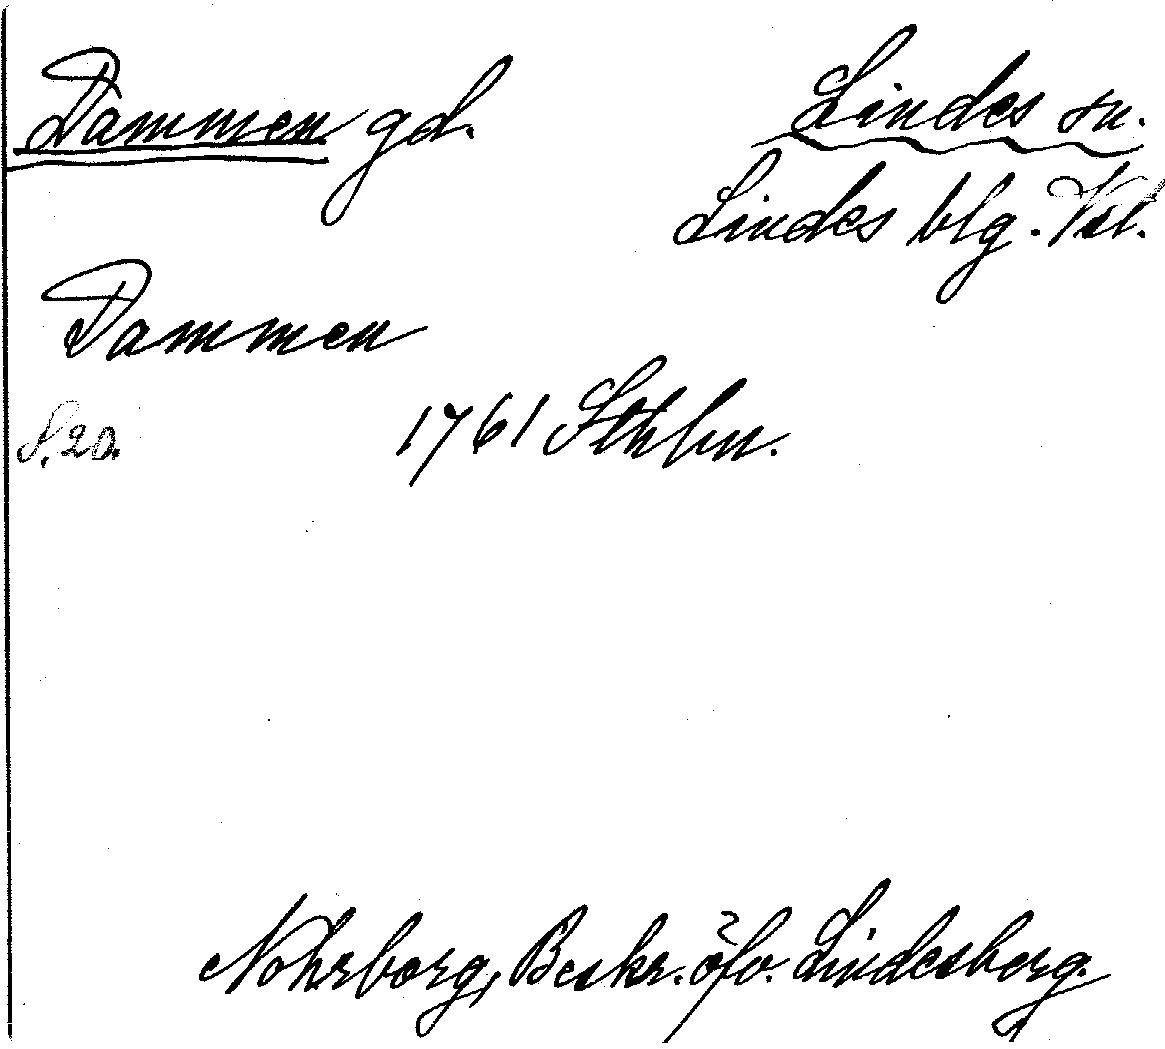 Dammen gd.
Lindes sn.
Lindes blg. Vsl.
Dammen
S. 20.
1761 Sthbn.
Nohrborg, Beskr. öfv. Lindesberg.